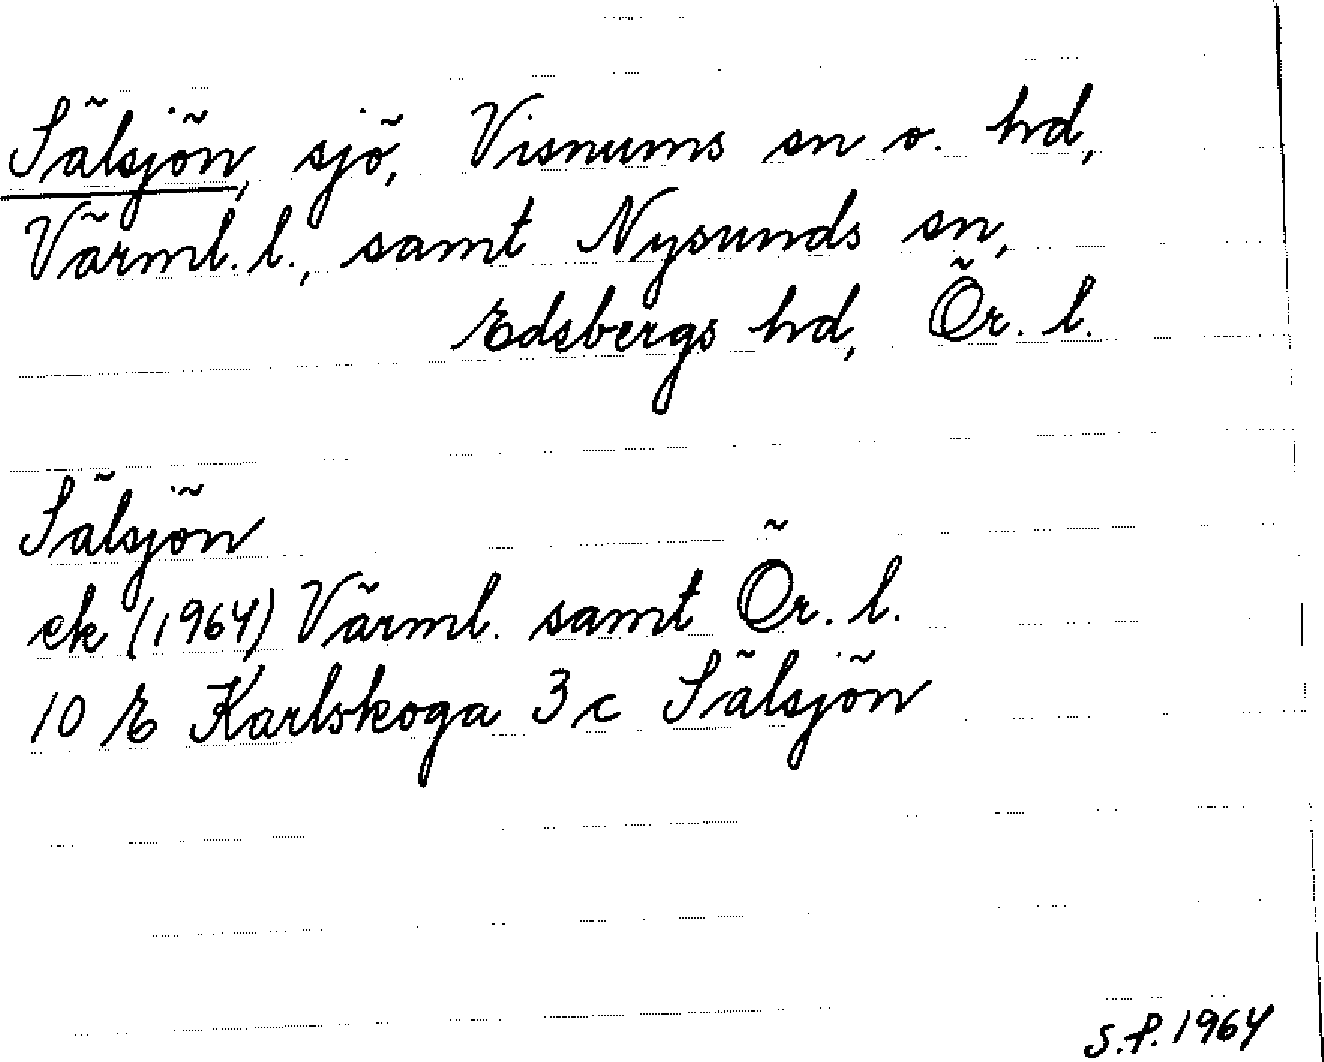 Sälsjön, sjö, Visnums sn o. hd,
Värml. l., samt Nysunds sn,
Edsbergs hd, Ör. l.
Sälsjön
ek (1964) Värml. samt Ör. l.
10 E Karlskoga 3 c Sälsjön
S.P. 1964